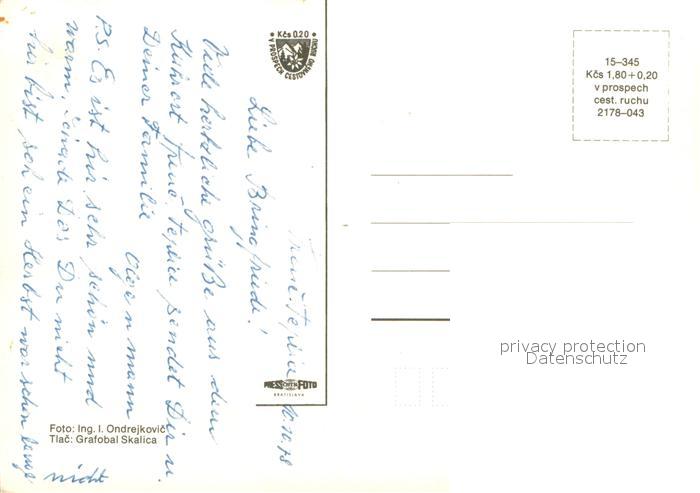 Trenč. Teplice 10.10.78
Liebe Bringfriede!
Viele herzliche Grüße aus dem
Kurort Trenč. Teplice sendet Dir u.
Deiner Familie
P.S. Es ist hir sehr schön und
warm, schade das Du nicht
hir bist so ein Herbst war schon lange
nicht
Kčs 0.20
V PROSPECH CESTOVNÉHO RUCHU
PRESSFOTO
BRATISLAVA
Foto: Ing. I. Ondrejkovič
Tlač: Grafobal Skalica
15–345
Kčs 1,80 + 0,20
v prospech
cest. ruchu
2178–043
privacy protection
Datenschutz